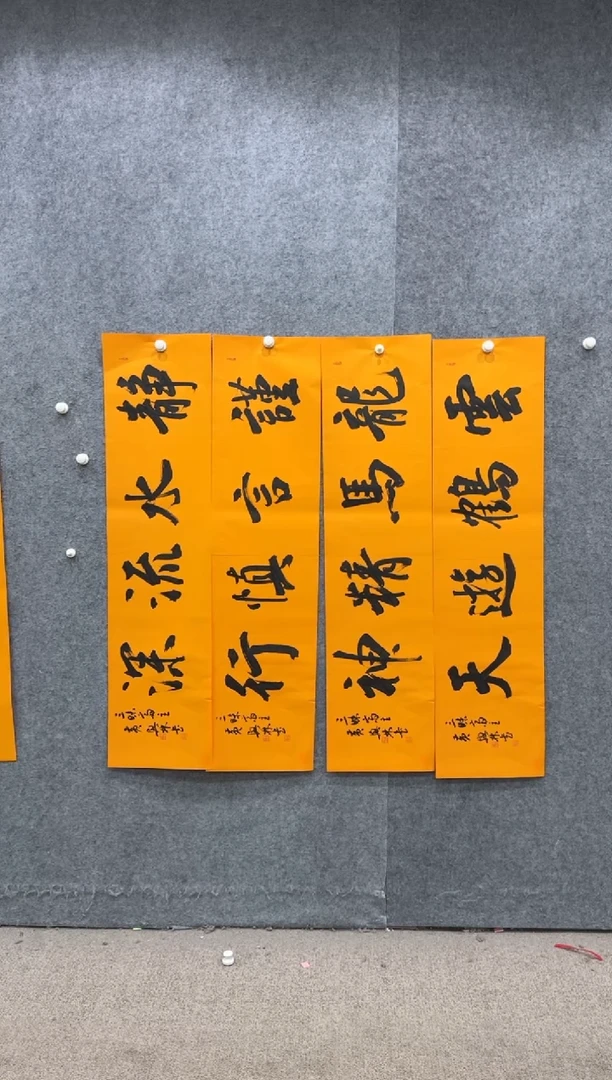 雲鶴遊天
龍馬精神
謹言慎行
靜水流深